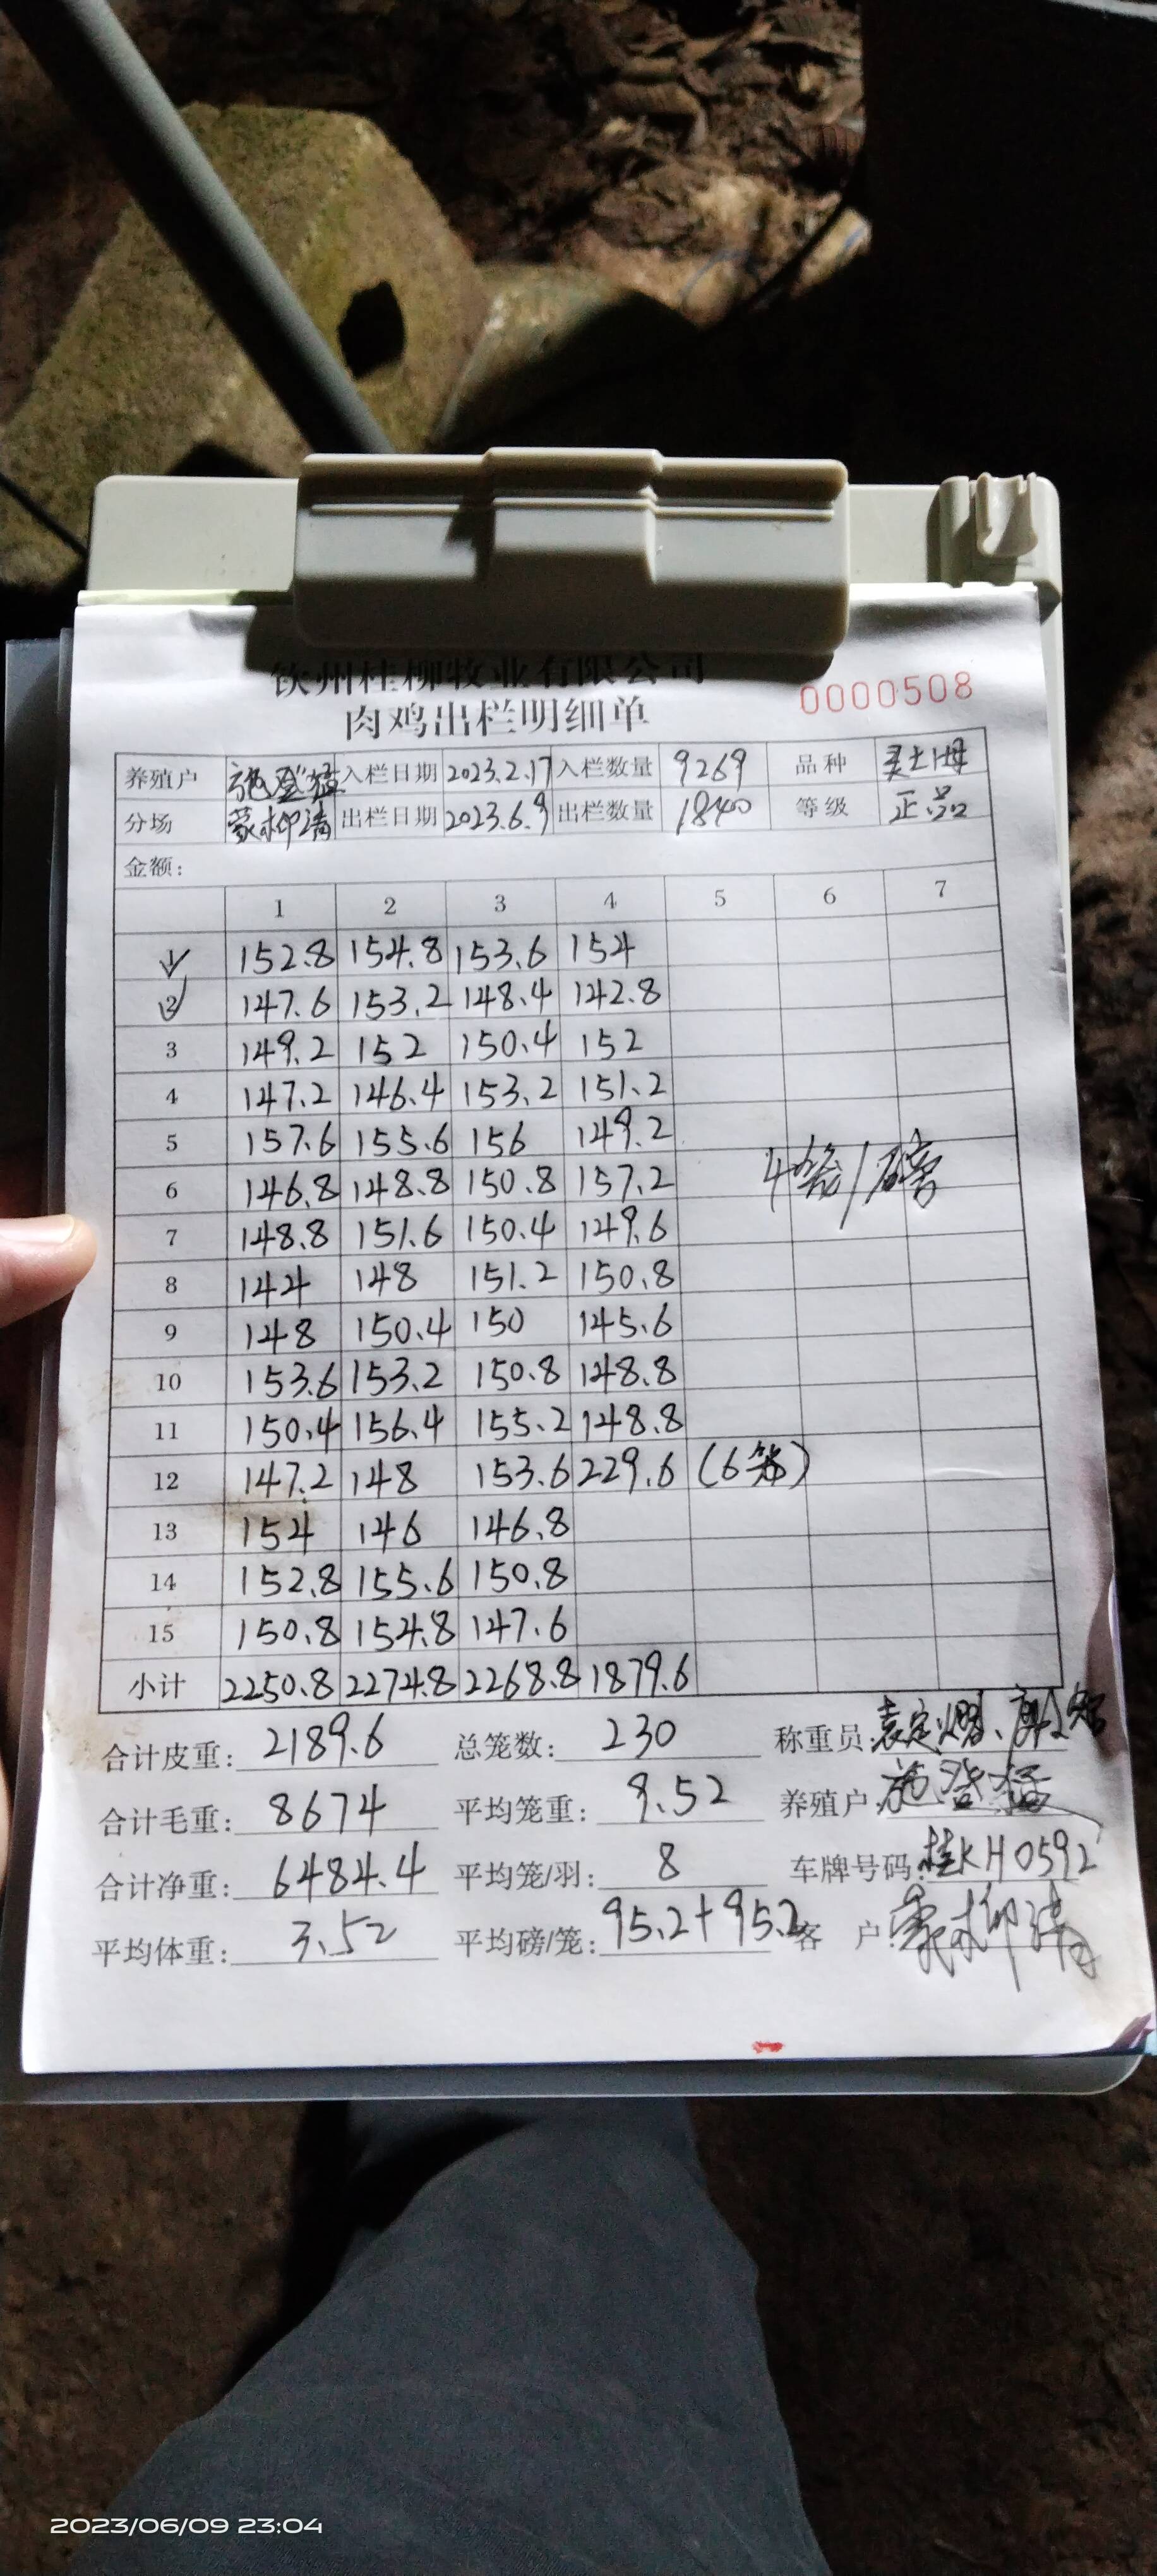 钦州桂柳牧业有限公司
肉鸡出栏明细单 0000508
养殖户 施登猛 入栏日期 2023.2.17 入栏数量 9269 品种 土
分场 蒙柳清 出栏日期 2023.6.9 出栏数量 1840 等级 正品
金额:
1 2 3 4 5 6 7
1 152.8 154.8 153.6 154
2 147.6 153.2 148.4 142.8
3 149.2 152 150.4 152
4 147.2 146.4 153.2 151.2
5 157.6 155.6 156 149.2
6 146.8 148.8 150.8 157.2 4笼/磅
7 148.8 151.6 150.4 149.6
8 144 148 151.2 150.8
9 148 150.4 150 145.6
10 153.6 153.2 150.8 148.8
11 150.4 156.4 155.2 148.8
12 147.2 148 153.6 229.6 (6笼)
13 154 146 146.8
14 152.8 155.6 150.8
15 150.8 154.8 147.6
小计 2250.8 2274.8 2268.8 1879.6
合计皮重: 2189.6 总笼数: 230 称重员: 袁定
合计毛重: 8674 平均笼重: 9.52 养殖户: 施登猛
合计净重: 6484.4 平均笼/羽: 8 车牌号码: 桂KH0592
平均体重: 3.52 平均磅/笼: 95.2+95.2 客 户: 蒙柳清
2023/06/09 23:04